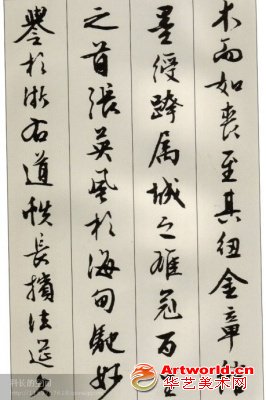 木而如喪至其紐金章綰
墨綬跨属城之雄冠百里
之首張英風於海甸馳妙
譽於浙右道帙長擯法筵
科长的空间
Artworld.cn
华艺美术网